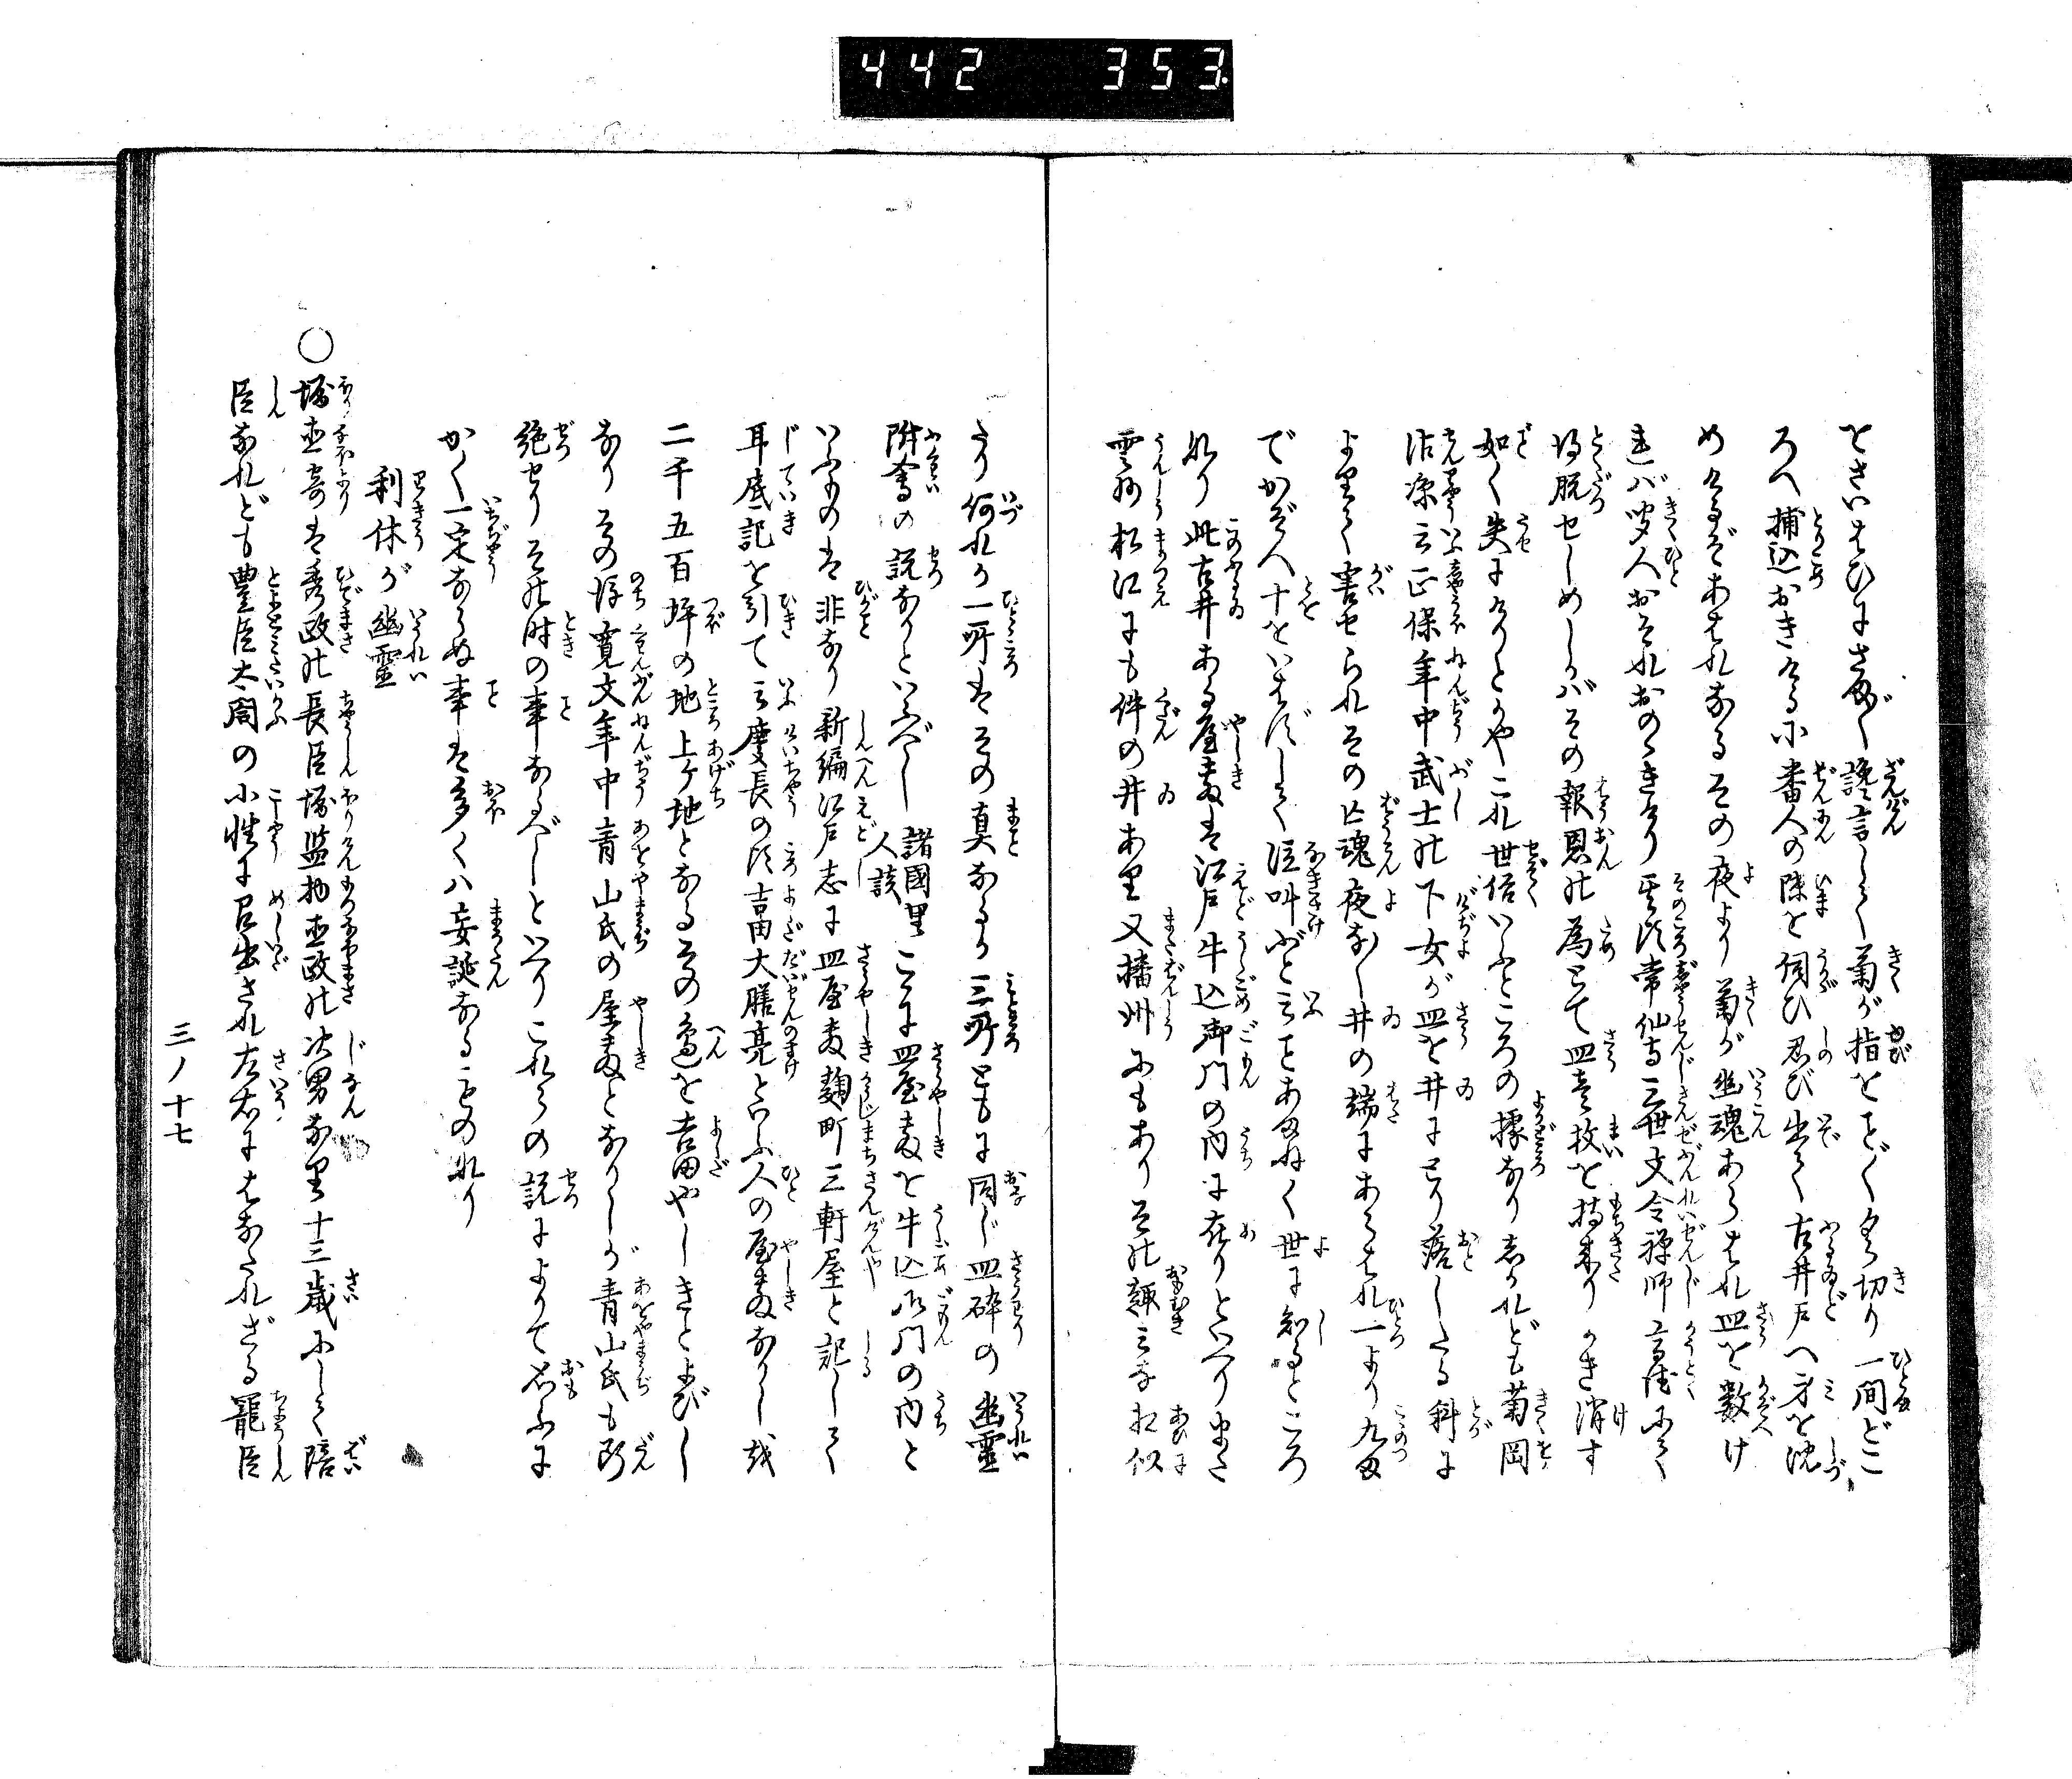 442 353
とさいはひにさま〲讒言して菊が指をこと〲く切り一間どこ
ろへ捕込おきけるに番人の隙を伺ひ忍び出て古井戸へ身を沈
めけるぞあはれなるその夜より菊が幽魂あらはれ皿を数け
れバ聞人おそれおのゝきけり其頃常仙寺三世文令禅師高徳にて
得脱せしめしかバその報恩の為とて皿壱枚を持来りかき消す
如く失にけりとかやこれ世俗いふところの據なりしかれども菊岡
沾凉云正保年中武士の下女が皿を井に取り落したる科に
より て害せられその亡魂夜な〱井の端にあらはれ一より九ま
でかぞへ十をいはずして泣叫ぶと云ことあまねく世に知るところ
なり此古井ある屋敷は江戸牛込御門の内に在りといへりまた
雲州松江にも件の井あり又播州にもありその趣ミな相似
たり何れか一所はその真なるか三所ともに同じ皿砕の幽霊
附會の説なりといふべし諸國里人談こに皿屋敷を牛込御門の内と
いふものは非なり新編江戸志に皿屋敷麹町三軒屋と記して
耳底記を引て云慶長の頃吉田大膳亮といふ人の屋敷なりし故
二千五百坪の地上ケ地となるその邊を吉田やしきとよびし
なりその後寛文年中青山氏の屋敷となりしが青山氏も断
絶せりその時の事なるべしといへりこれらの説によりて思ふに
かく一定ならぬ事は多くハ妄誕なるものなり
利休が幽霊
○堀直寄は秀政の長臣堀監物直政の次男なり十三歳にして陪
臣なれども豊臣太閤の小性に召出され左右にはなたれざる寵臣
三ノ十七